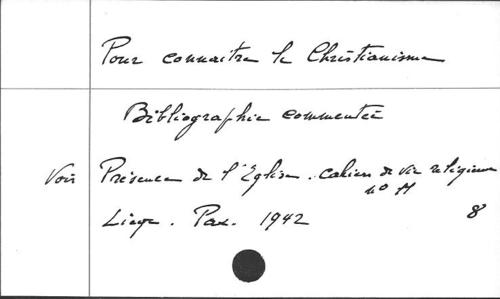 Pour connaitre le Christianisme
Bibliographie commentée
Voir Présence de l'Eglise. Cahiers de vie religieuse
no
Liège. Pax. 1942 8